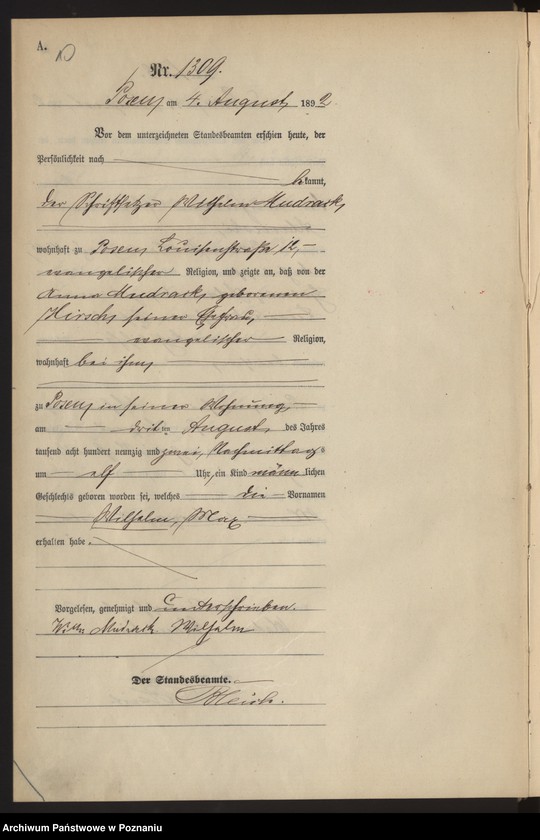 A.
Nr. 1309.
Posen, am 4. August 1892
Vor dem unterzeichneten Standesbeamten erschien heute, der
Persönlichkeit nach
bekannt,
der Schriftsetzer Wilhelm Mudrack,
wohnhaft zu Posen, Louisenstraße 12,
evangelischer Religion, und zeigte an, daß von der
Anna Mudrack, geborenen
Hirsch, seiner Ehefrau,
evangelischer Religion,
wohnhaft bei ihm,
zu Posen, in seiner Wohnung,
am dritten August des Jahres
tausend acht hundert neunzig und zwei, Nachmittags
um elf Uhr, ein Kind männlichen
Geschlechts geboren worden sei, welches die Vornamen
Wilhelm, Max
erhalten habe.
Vorgelesen, genehmigt und unterschrieben.
Mudrack Wilhelm
Der Standesbeamte.
Archiwum Państwowe w Poznaniu